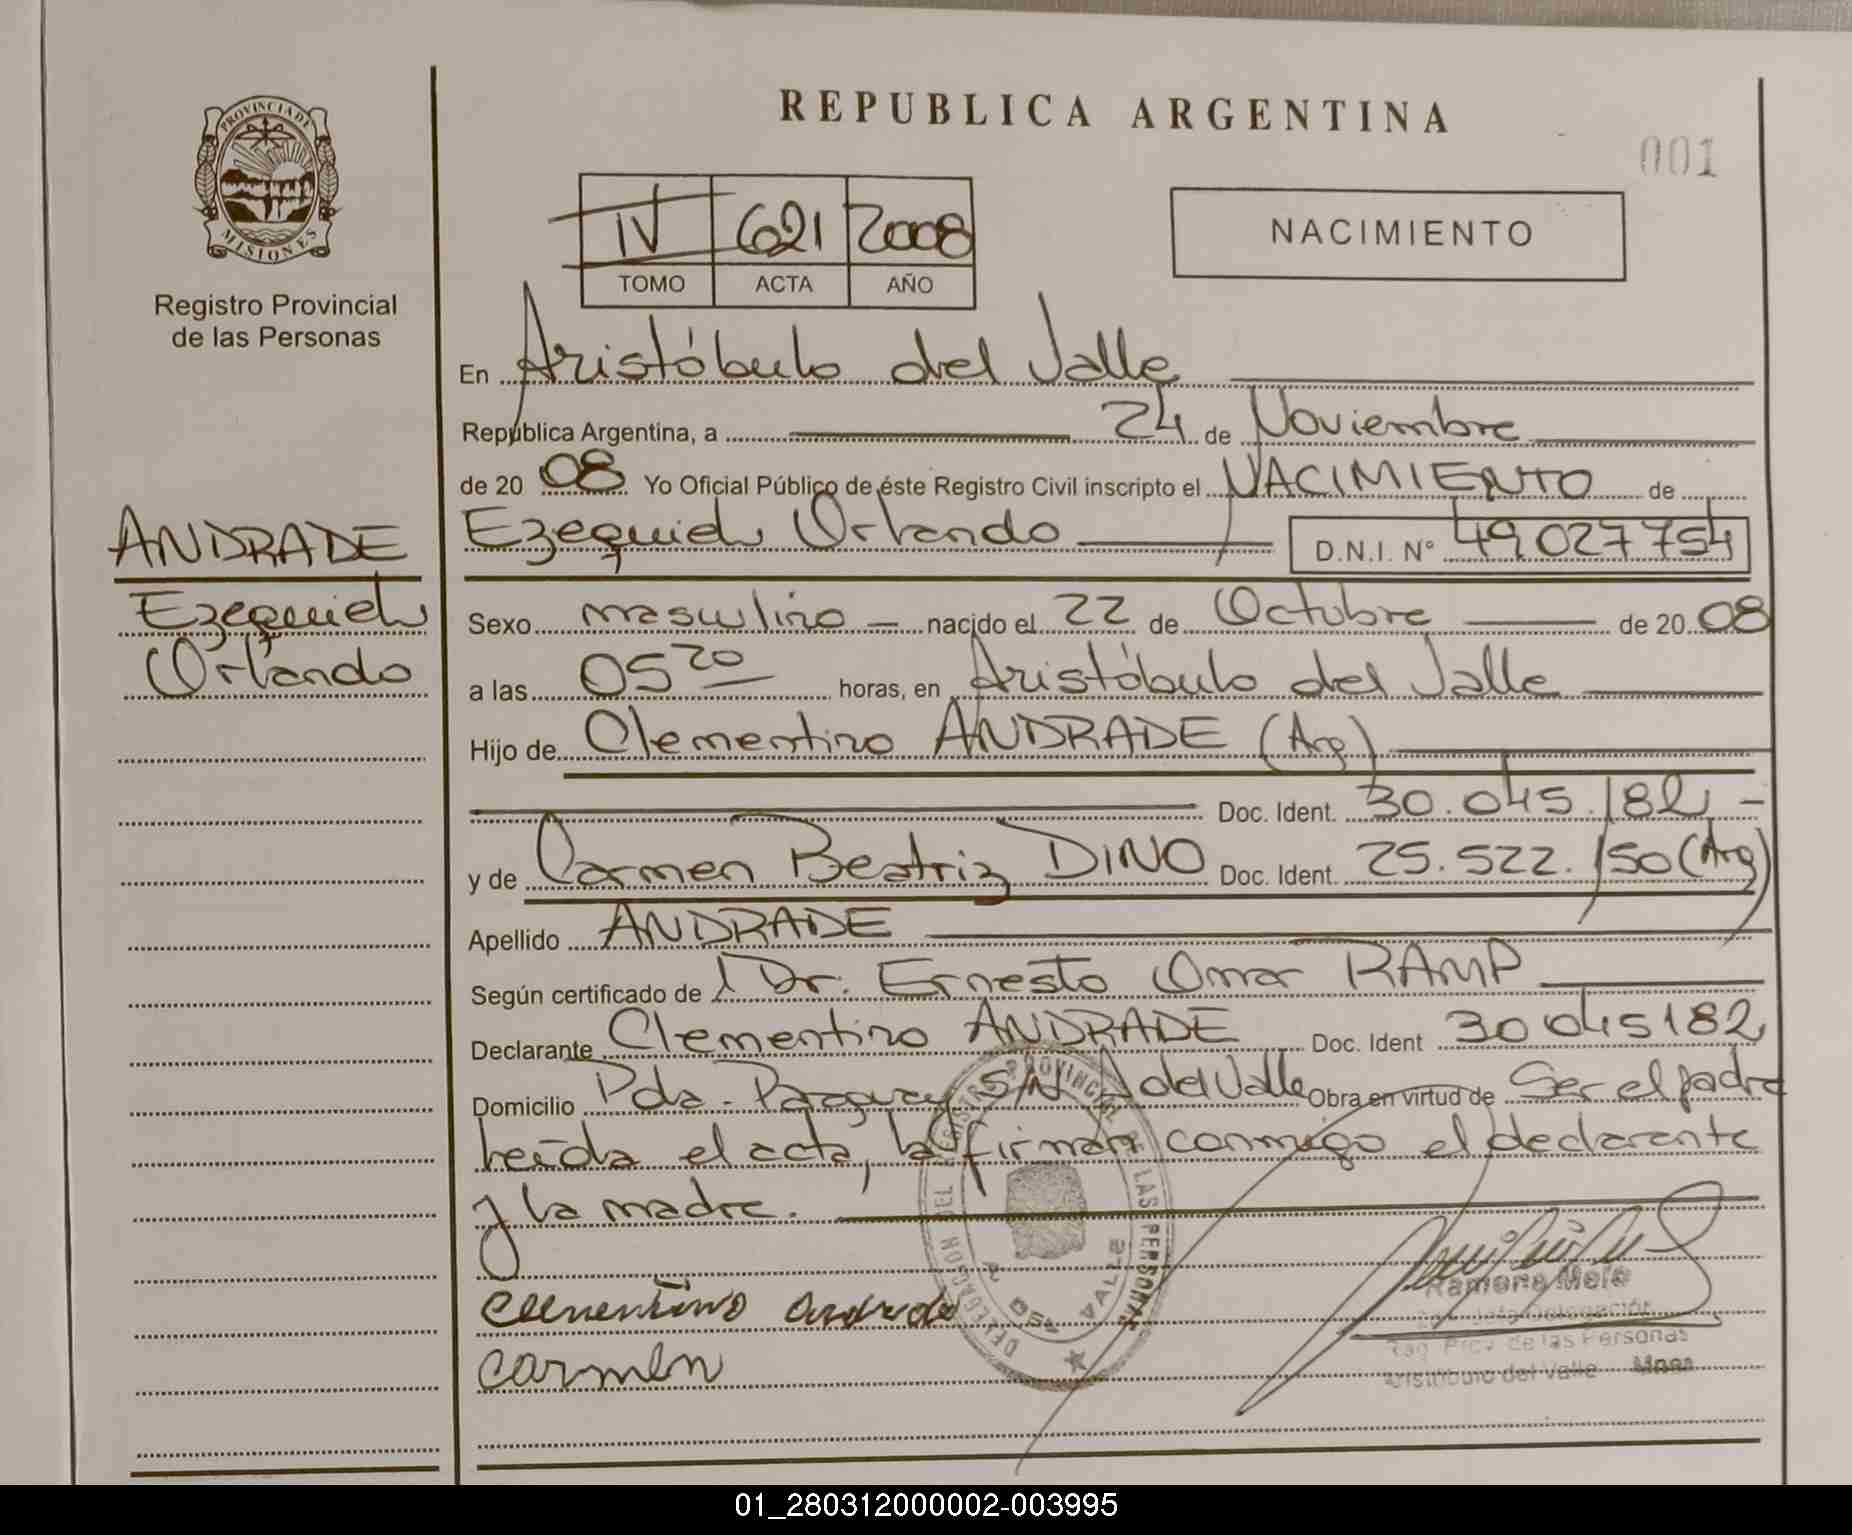 REPUBLICA ARGENTINA
001
PROVINCIA DE MISIONES
Registro Provincial
de las Personas
IV 621 2008
TOMO ACTA AÑO
NACIMIENTO
En Aristóbulo del Valle
República Argentina, a 24 de Noviembre
de 20 08 Yo Oficial Público de éste Registro Civil inscripto el NACIMIENTO de
Ezequiel Orlando D.N.I. N° 49027754
ANDRADE
Ezequiel
Orlando
Sexo masculino nacido el 22 de Octubre de 20 08
a las 05 20 horas, en Aristóbulo del Valle
Hijo de Clementino ANDRADE (Arg)
Doc. Ident. 30.045.182
y de Carmen Beatriz DINO Doc. Ident. 25.522.150 (Arg)
Apellido ANDRADE
Según certificado de Dr. Ernesto Omar RAMP
Declarante Clementino ANDRADE Doc. Ident 30045182
Domicilio Pda. Paraguay S/N A del Valle Obra en virtud de Ser el padre
Leída el acta, la firman conmigo el declarante
y la madre.
DELEGACION DEL REGISTRO PROVINCIAL DE LAS PERSONAS
A DEL VALLE
Clementino Andrade
Carmen
Ramona Melo
Delegación
Reg. Prov. de las Personas
Aristóbulo del Valle Mnes
01_280312000002-003995